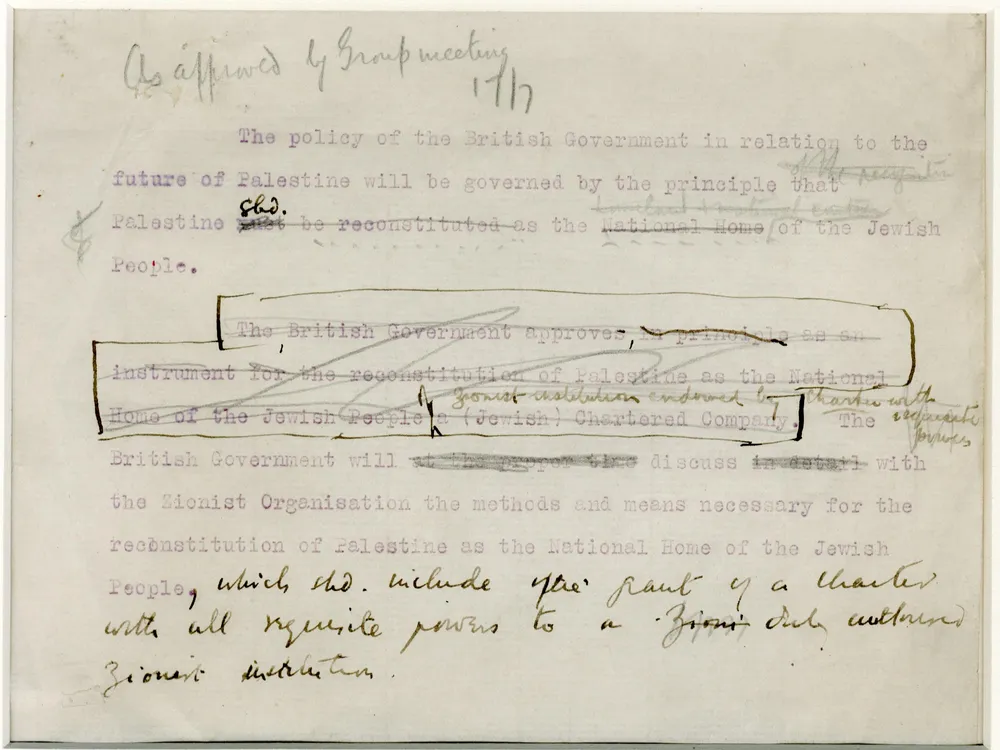 As approved by Group meeting
17/7
The policy of the British Government in relation to the
of the
future of Palestine will be governed by the principle that
shd.
Palestine must be reconstituted as the National Home of the Jewish
People.
The British Government approves, in principle as an
instrument for the reconstitution of Palestine as the National
of Zionist institution endowed by Charter with
Home of the Jewish People a (Jewish) Chartered Company. The
requisite
powers
British Government will at the proper time discuss in detail with
the Zionist Organisation the methods and means necessary for the
reconstitution of Palestine as the National Home of the Jewish
People, which shd. include the grant of a Charter
with all requisite powers to a Zioni duly authorised
Zionist institution.